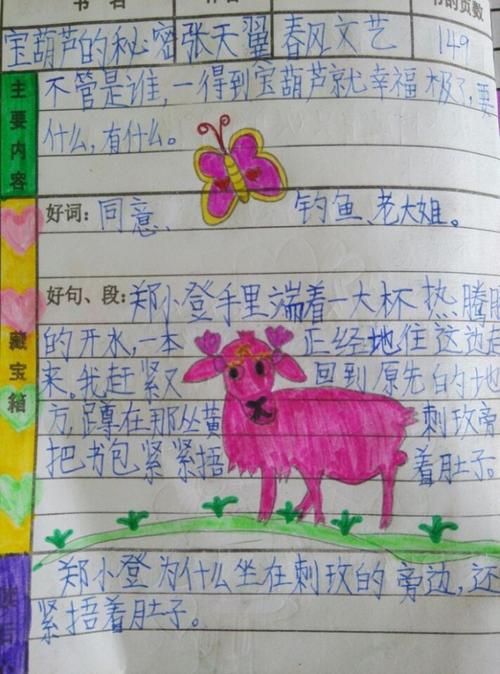 书 名 的页数
宝葫芦的秘密 张天翼 春风文艺 149
主要内容
不管是谁,一得到宝葫芦就幸福极了,要
什么,有什么。
好词: 同意、 钓鱼、老大姐。
藏宝箱
好句、段: 郑小登手里端着一大杯热腾
的开水,一本 正经地住这边走
来。我赶紧又 回到原先的地
方,蹲在那丛黄 刺玫旁
把书包紧紧捂 着肚子。
郑小登为什么坐在刺玫的旁边,还
紧捂着肚子。